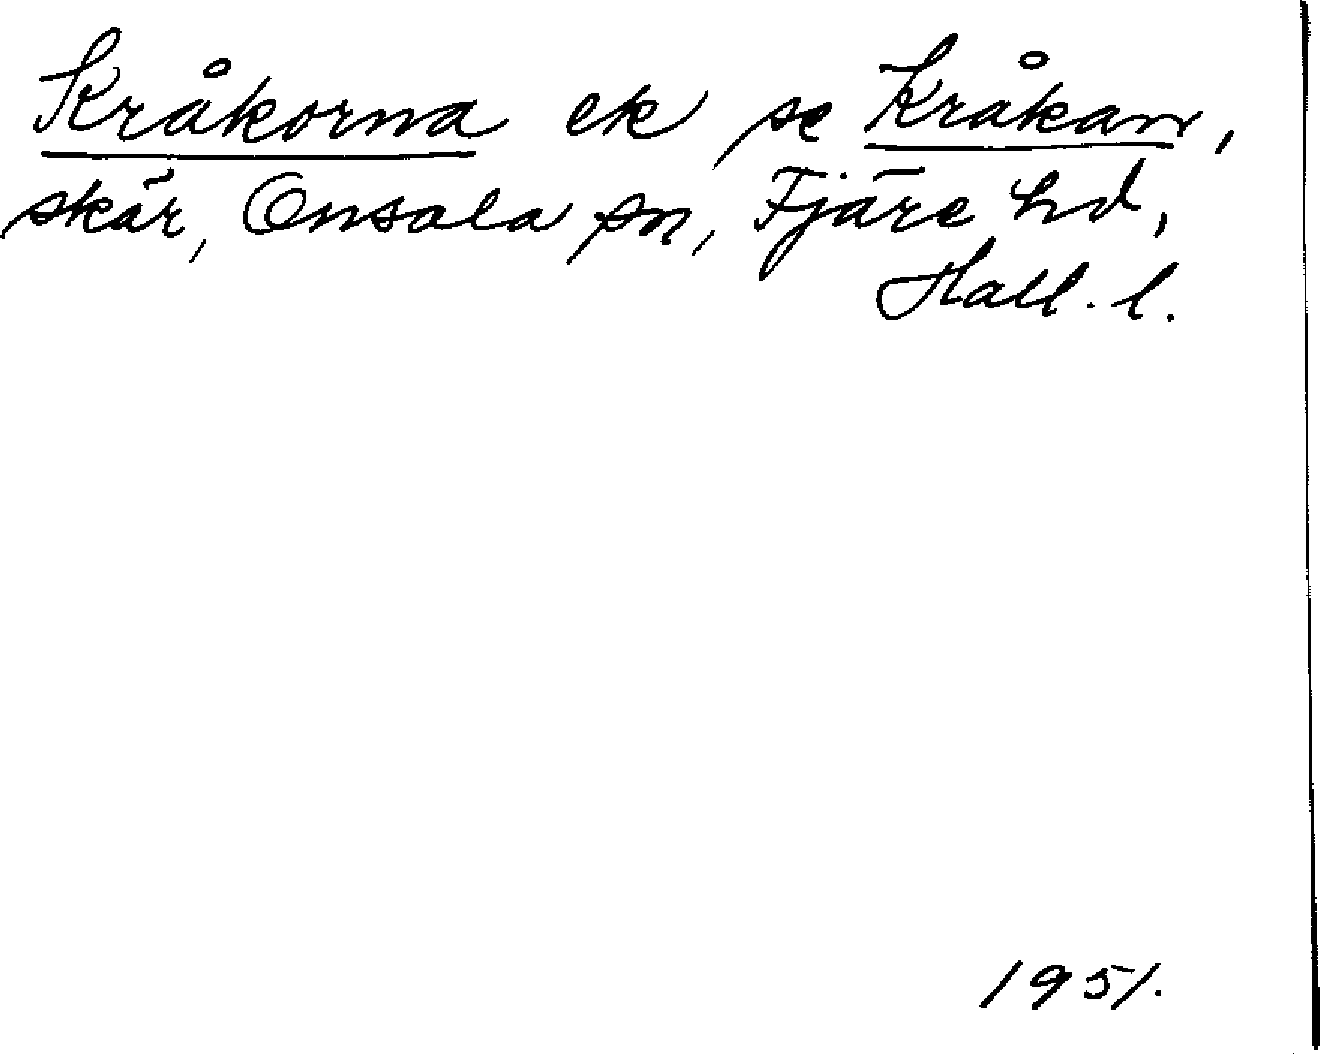 Kråkorna ek se Kråkan,
skär, Onsala sn, Fjäre hd,
Hall. l.
1951.